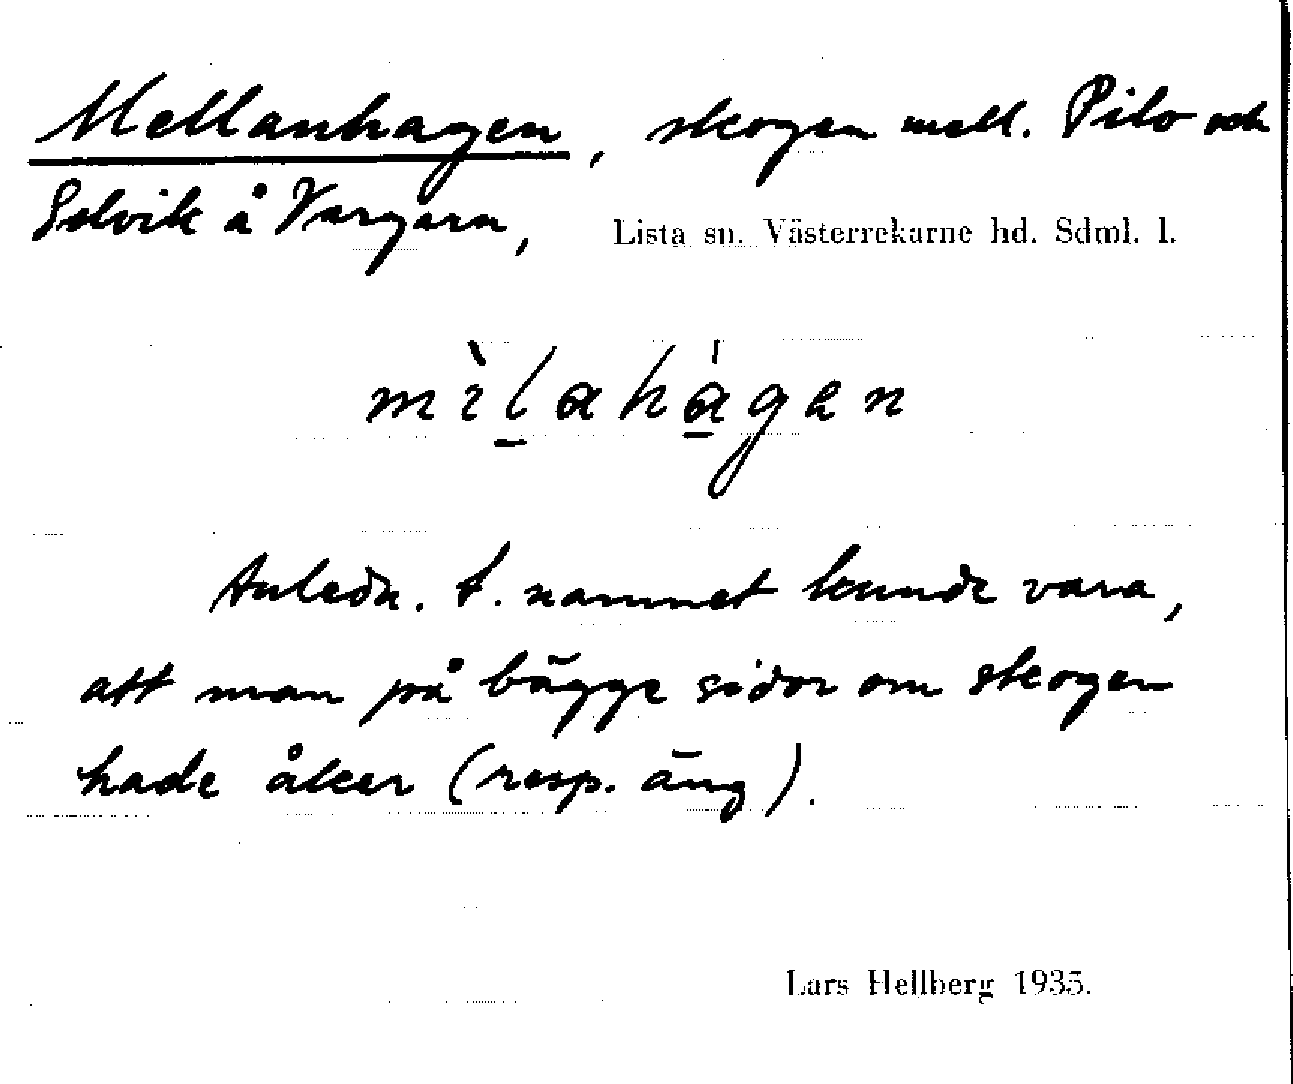 Mellanhagen, skogen mell. Pilo och
Solvik å Vargarn, Lista sn. Västerrekarne hd. Sdml. l.
mìlahágen
Anledn. t. namnet kunde vara,
att man på bägge sidor om skogen
hade åker (resp. äng).
Lars Hellberg 1935.